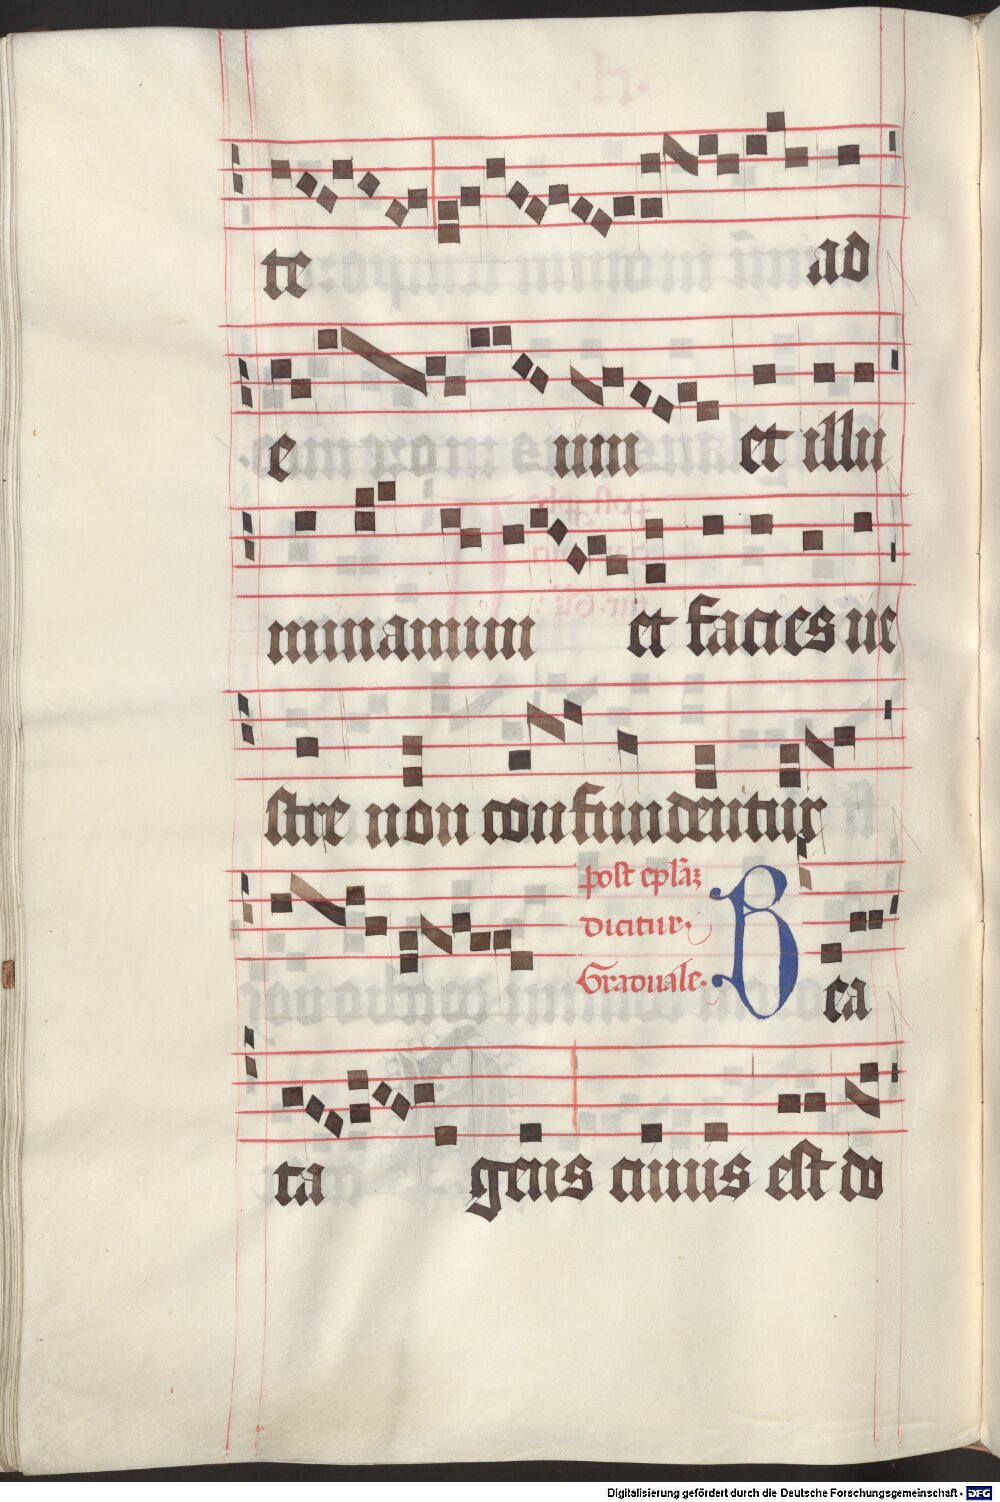 te ad
e um et illu
minamini et facies ue
stre non confundentur
post epl̄aꝫ
dicitur.
Graduale.
B ea
ta gens cuius est do
Digitalisierung gefördert durch die Deutsche Forschungsgemeinschaft - DFG